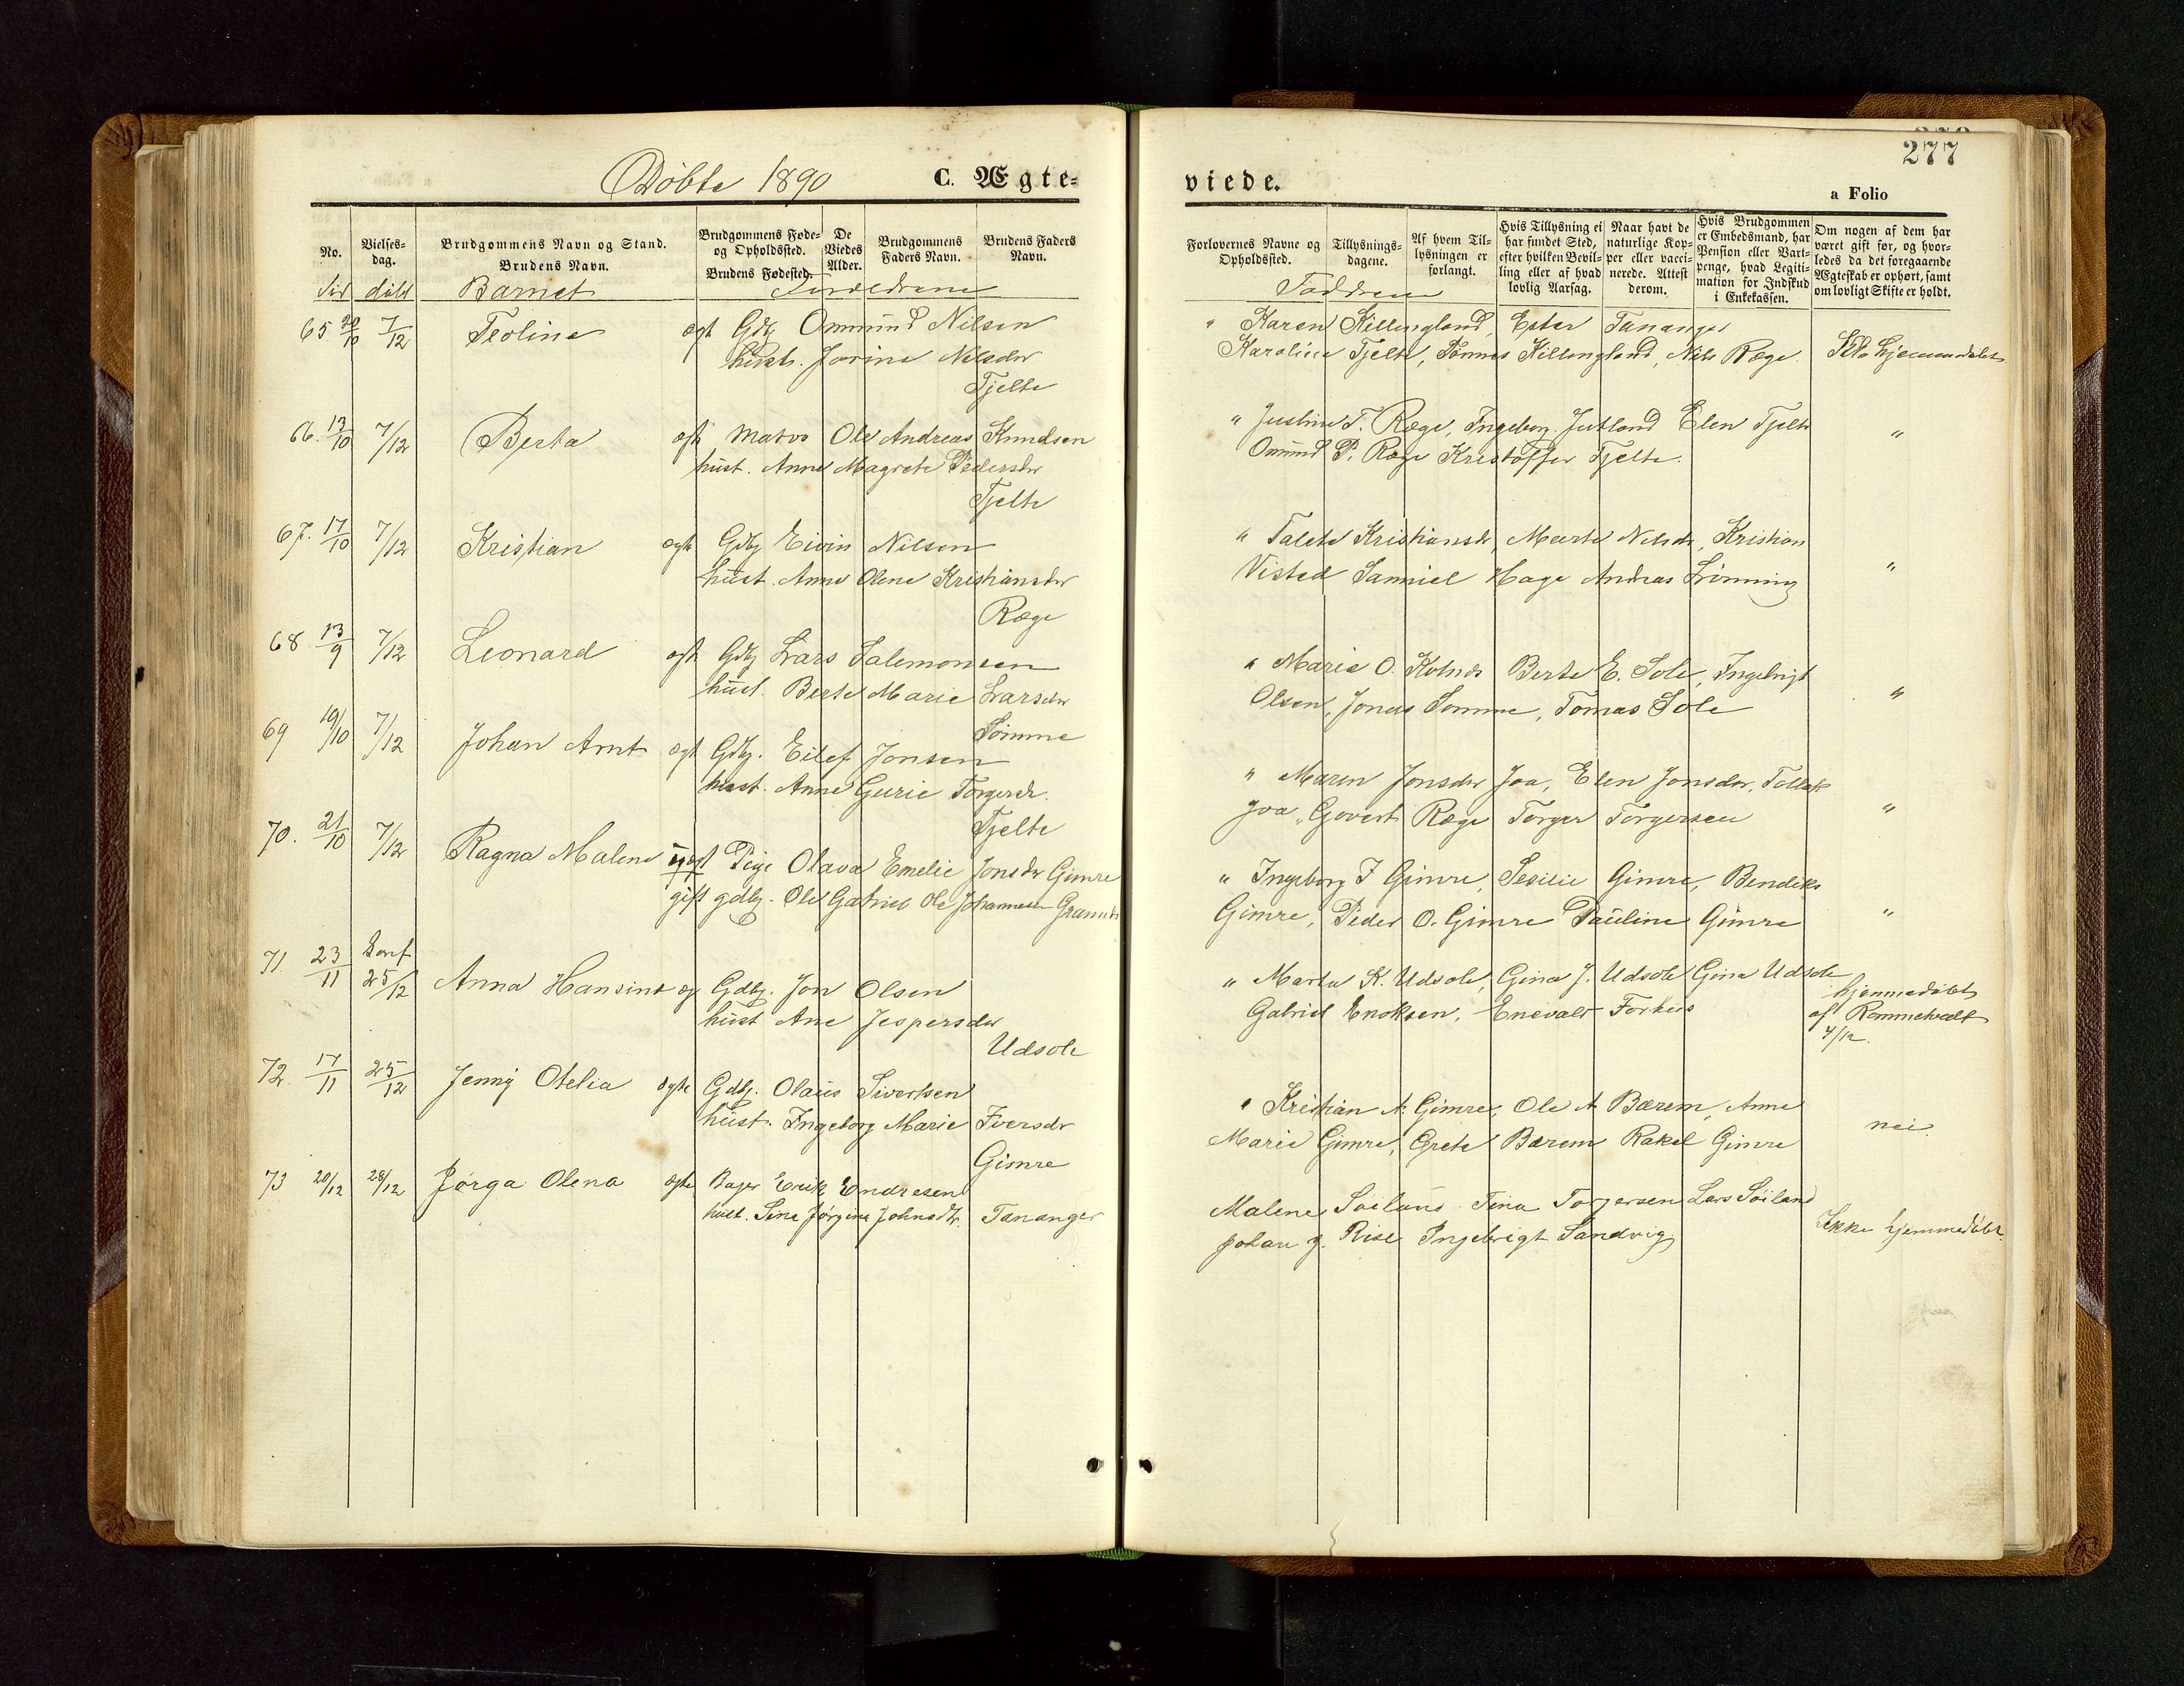 Døbte 1890 C. Ægte-
No.
Vielses-
dag.
Brudgommens Navn og Stand.
Brudens Navn.
Brudgommens Føde-
og Opholdssted.
Brudens Fødested.
De
Viedes
Alder.
Brudgommens
Faders Navn.
Brudens Faders
Navn.
død døbt Barnet
65. 7/12 Teoline ægt Gdbj Ommund Nilsen
hust. Jorine Nilsdtr
Tjelte
66. 13/10 7/12 Berta ægt Matros Ole Andreas Knudsen
hust. Anne Magrete Pedersdtr
Tjelte
67. 17/10 7/12 Kristian ægte Gdbj Eivin Nilsen
hust. Anne Olene Kristiansdtr
Ræge
68 13/9 7/12 Leonard ægte Gdbj Lars Salemonsen
hust. Berte Marie Larsdtr
Sømme
69 19/10 7/12 Johan Arnt ægt Gdbj. Eilef Jonsen
hust. Anne Gurie Torgersdr.
Tjelte
70. 21/10 7/12 Ragna Malene uægt Pige Olava Emelie Jonsdr Gimre
gift gdbj. Ole Gabriel Ole Johannesen
71 23/11 25/12 Anna Hansine æg Gdbj. Jon Olsen
hust Ane Jespersdtr
Udsole
72. 17/11 25/12 Jenny Otelia ægte Gdbj. Olaus Sivertsen
hust. Ingeborg Marie Iversdr
Gimre
73 20/12 28/12 Jørga Olena ægte Bager Erik Endresen
hust. Sine Jørgine Johnsdtr. Tananger
277
viede.
a Folio
Forlovernes Navne og
Opholdssted.
Tillysnings-
dagene.
Af hvem Til-
lysningen er
forlangt.
Hvis Tillysning ei
har fundet Sted,
efter hvilken Bevil-
ling eller af hvad
lovlig Aarsag.
Naar havt de
naturlige Kop-
per eller vacci-
nerede. Attest
derom.
Hvis Brudgommen
er Embedsmand, har
Pension eller Vart-
penge, hvad Legiti-
mation for Indskud
i Enkekassen.
Om nogen af dem har
været gift før, og hvor-
ledes da det foregaaende
Ægteskab er ophørt, samt
om lovligt Skifte er holdt.
Faddrene
" Karen Killingland, Ester Tananger
Karoline Tjelte, Tønnes Killingland, Nils Ræge. Ikke hjemmedøbt
" Justine T. Ræge, Ingeborg Jutland Elen Tjelte
Omund P. Ræge Kristoffer Tjelte. "
" Talete Kristiansdr, Marta Nilsdr, Kristian
Visted Samuel Hage Andreas Lønning "
" Marie O. Kolnes Berte E. Sole, Ingebrigt
Olsen, Jonas Sømme, Tomas Sole "
" Maren Jonsdtr Joa, Elen Jonsdtr, Tollak
Joa, Govert Ræge Torger Torgersen "
" Ingeborg J Gimre, Sesilie Gimre, Bendiks
Gimre, Peder O. Gimre Pauline Gimre "
" Marta K. Udsole, Gina J. Udsole Gina Udsole
Gabriel Enoksen, Enevald Forhus
hjemmedøbt
af
4/12.
" Kristian A. Gimre, Ole A. Bærem, Anne
Marie Gimre, Grete Bærem Rakel Gimre nei.
Malene Soiland Tina Torjersen Lars Soiland
Johan J. Rise Ingebrigt Sandvig Ikke hjemmedøbt.